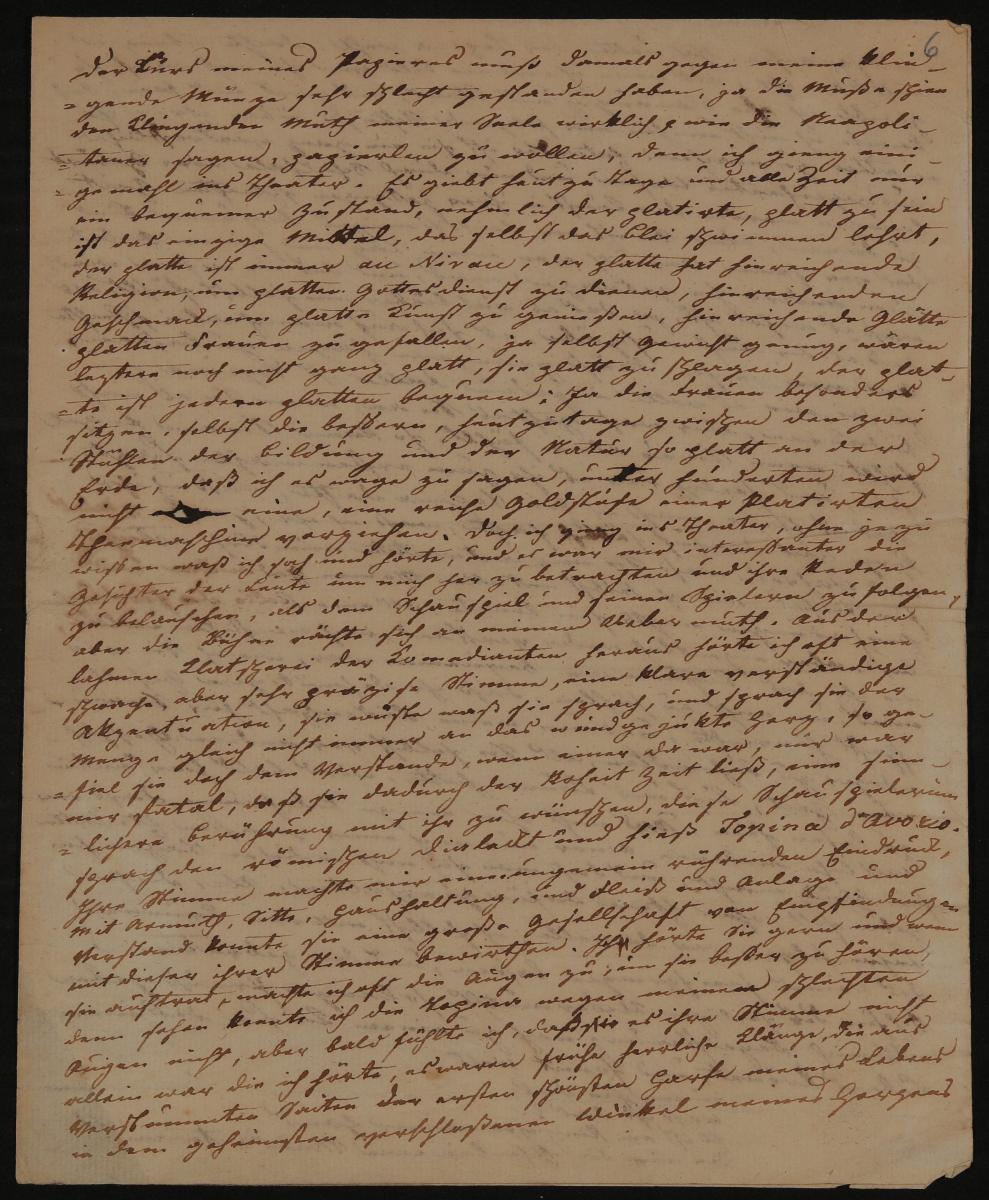 6
der Kurs meines Papieres muß damals gegen meine klin-
=gende Münze sehr schlecht gestanden haben, ja die Muße schien
den klingenden Muth meiner Seele wirklich, wie die Neapoli-
=taner sagen, papierlen zu wollen, denn ich gieng eini-
=gemahl ins Theater. Es giebt heut zu Tage und alle Zeit nur
ein bequemer Zustand, nehmlich der platirte, platt zu sein
ist das einzige Mittel, das selbst das Blei schwimmen lehrt,
der platte ist immer au Niveau, der platte hat hinreichende
Religion, um platten Gottesdienst zu dienen, hinreichenden
Geschmack, um platte Kunst zu genießen, hinreichende Glätte
platten Frauen zu gefallen, ja selbst Gewicht genung, wären
leztere noch nicht ganz platt, sie platt zu schlagen, der plat-
=te ist jedem platten bequem; Ja die Frauen besonders
sitzen, selbst die beßern, heut zutage zwischen den zwei
Stühlen der Bildung und der Natur so platt an der
Erde, daß ich es wage zu sagen, unter hunderten wird
nicht eine, eine reiche Goldstufe einer Platirten
Theemaschine vorziehen. Doch ich gieng ins Theater, ohne je zu
wissen waß ich sah und hörte, und es war mir interessanter die
Gesichter der Leute um mich her zu betrachten und ihre Reden
zu belauschen, als dem Schauspiel und seinen Spielern zu folgen,
aber die Bühne rächte sich an meinem Uebermuth. Aus der
lahmen Klatscherei der Komedianten heraus hörte ich oft eine
schwache, aber sehr präzise Stimme, eine klare verständige
Akzentuation, sie wuste waß sie sprach, und sprach sie der
Menge gleich nicht immer an das wundgejükte Herz, so ge-
=fiel sie doch dem Verstande, wenn einer da war, nur war
mir fatal, daß sie dadurch der Roheit Zeit ließ, eine sinn-
=lichere Berührung mit ihr zu wünschen, diese Schauspielerinn
sprach den römischen Dialeckt und hieß Topina d'Avorio.
Ihre Stimme machte mir einen ungemein rührenden Eindruck,
Mit Armuth, Sitte, Haushaltung, und Fleiß und Anlage und
Verstand konnte sie eine große Gesellschaft von Empfindungen
mit dieser ihrer Stimme bewirthen. Ich hörte Sie gern und wenn
sie auftrat, machte ich oft die Augen zu, um sie beßer zu hören,
denn sehen konnte ich die Topina wegen meinen schlechten
Augen nicht, aber bald fühlte ich, daß es ihre Stimme nicht
allein war die ich hörte, es waren frühe herrliche Klänge, die aus
verstummten Saiten der ersten schönsten Harfe meines Lebens
in dem geheimsten verschloßenen Winkel meines Herzens